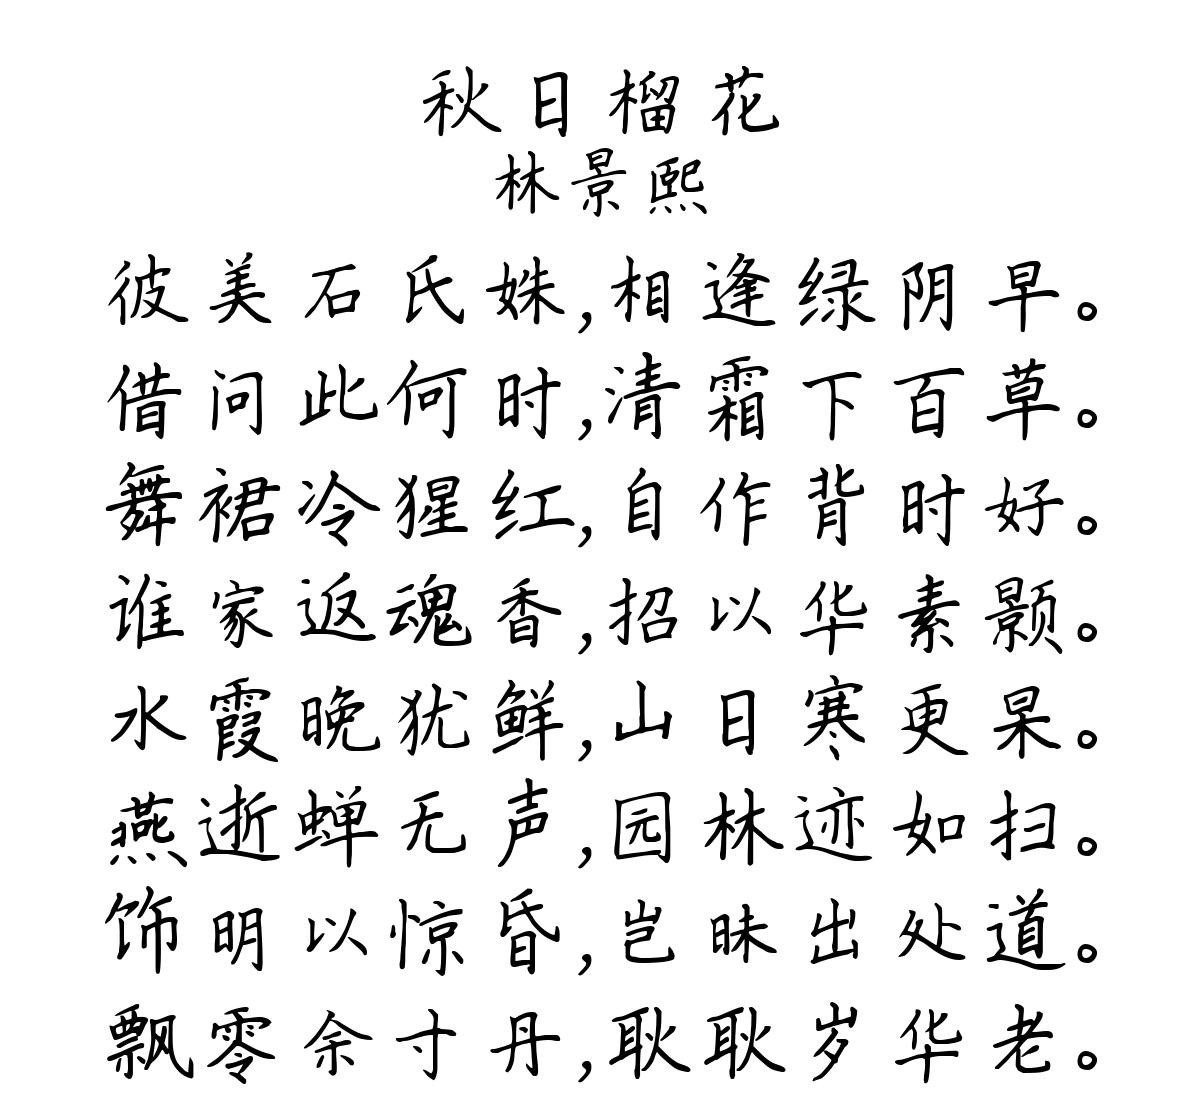 秋日榴花
林景熙
彼美石氏姝,相逢绿阴早。
借问此何时,清霜下百草。
舞裙冷猩红,自作背时好。
谁家返魂香,招以华素颢。
水霞晚犹鲜,山日寒更杲。
燕逝蝉无声,园林迹如扫。
饰明以惊昏,岂昧出处道。
飘零余寸丹,耿耿岁华老。